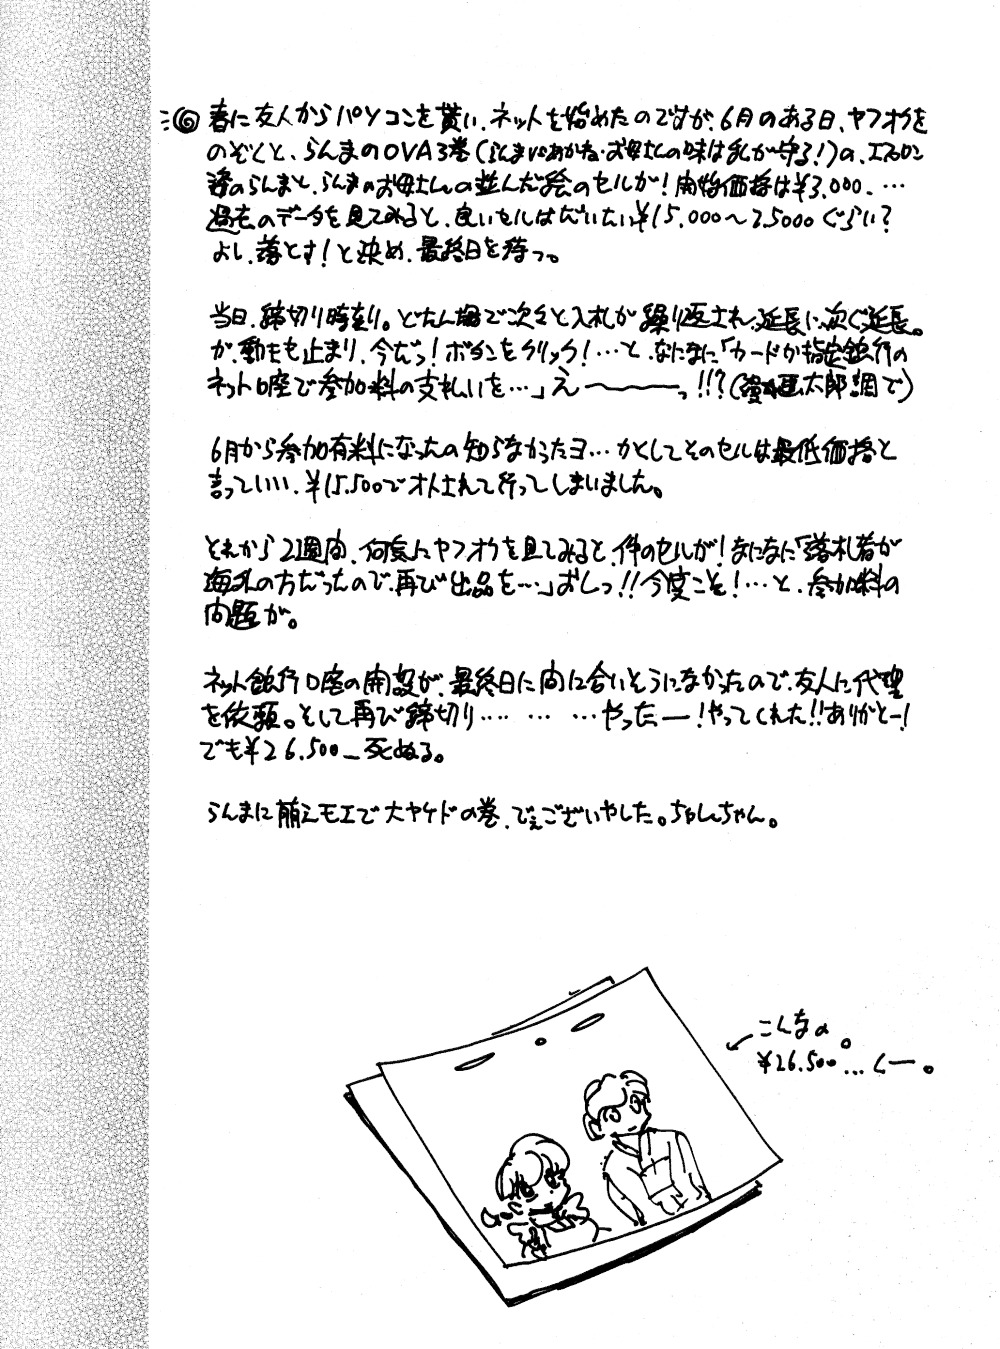 春に友人からパソコンを貰い、ネットを始めたのですが、6月のある日、ヤフオクを
のぞくと、らんまのOVA3巻(らんまVSあかね・お母さんの味は私が守る!)の、エプロン
姿のらんまと、らんまのお母さんの並んだ絵のセルが!開始価格は¥3.000、…
過去のデータを見てみると、良いセルはだいたい¥15.000〜25000ぐらい?
よし、落とす!と決め、最終日を待つ。
当日、締切り時刻。どたん場で次々と入札が繰り返され、延長に次ぐ延長。
が、動きも止まり、今だっ!ボタンをクリック!…と、なになに「カードか指定銀行の
ネット口座で参加料の支払いを…」え〜〜〜っ!!?(漫☆画太郎調で)
6月から参加有料になったの知らなかったヨ…かとしてそのセルは最低価格と
言っていい、¥15.500でオトされて行ってしまいました。
それから2週間、何気にヤフオクを見てみると、件のセルが!なになに「落札者が
海外の方だったので、再び出品を…」よしっ!!今度こそ!…と、参加料の
問題が。
ネット銀行口座の開設が、最終日に間に合いそうになかったので、友人に代理
を依頼。そして再び締切り… … …やったー!やってくれた!!ありがとー!
でも¥26.500_死ぬる。
らんまに萌えモエで大ヤケドの巻、でぇございやした。ちゃんちゃん。
こんなの。
¥26.500…くー。